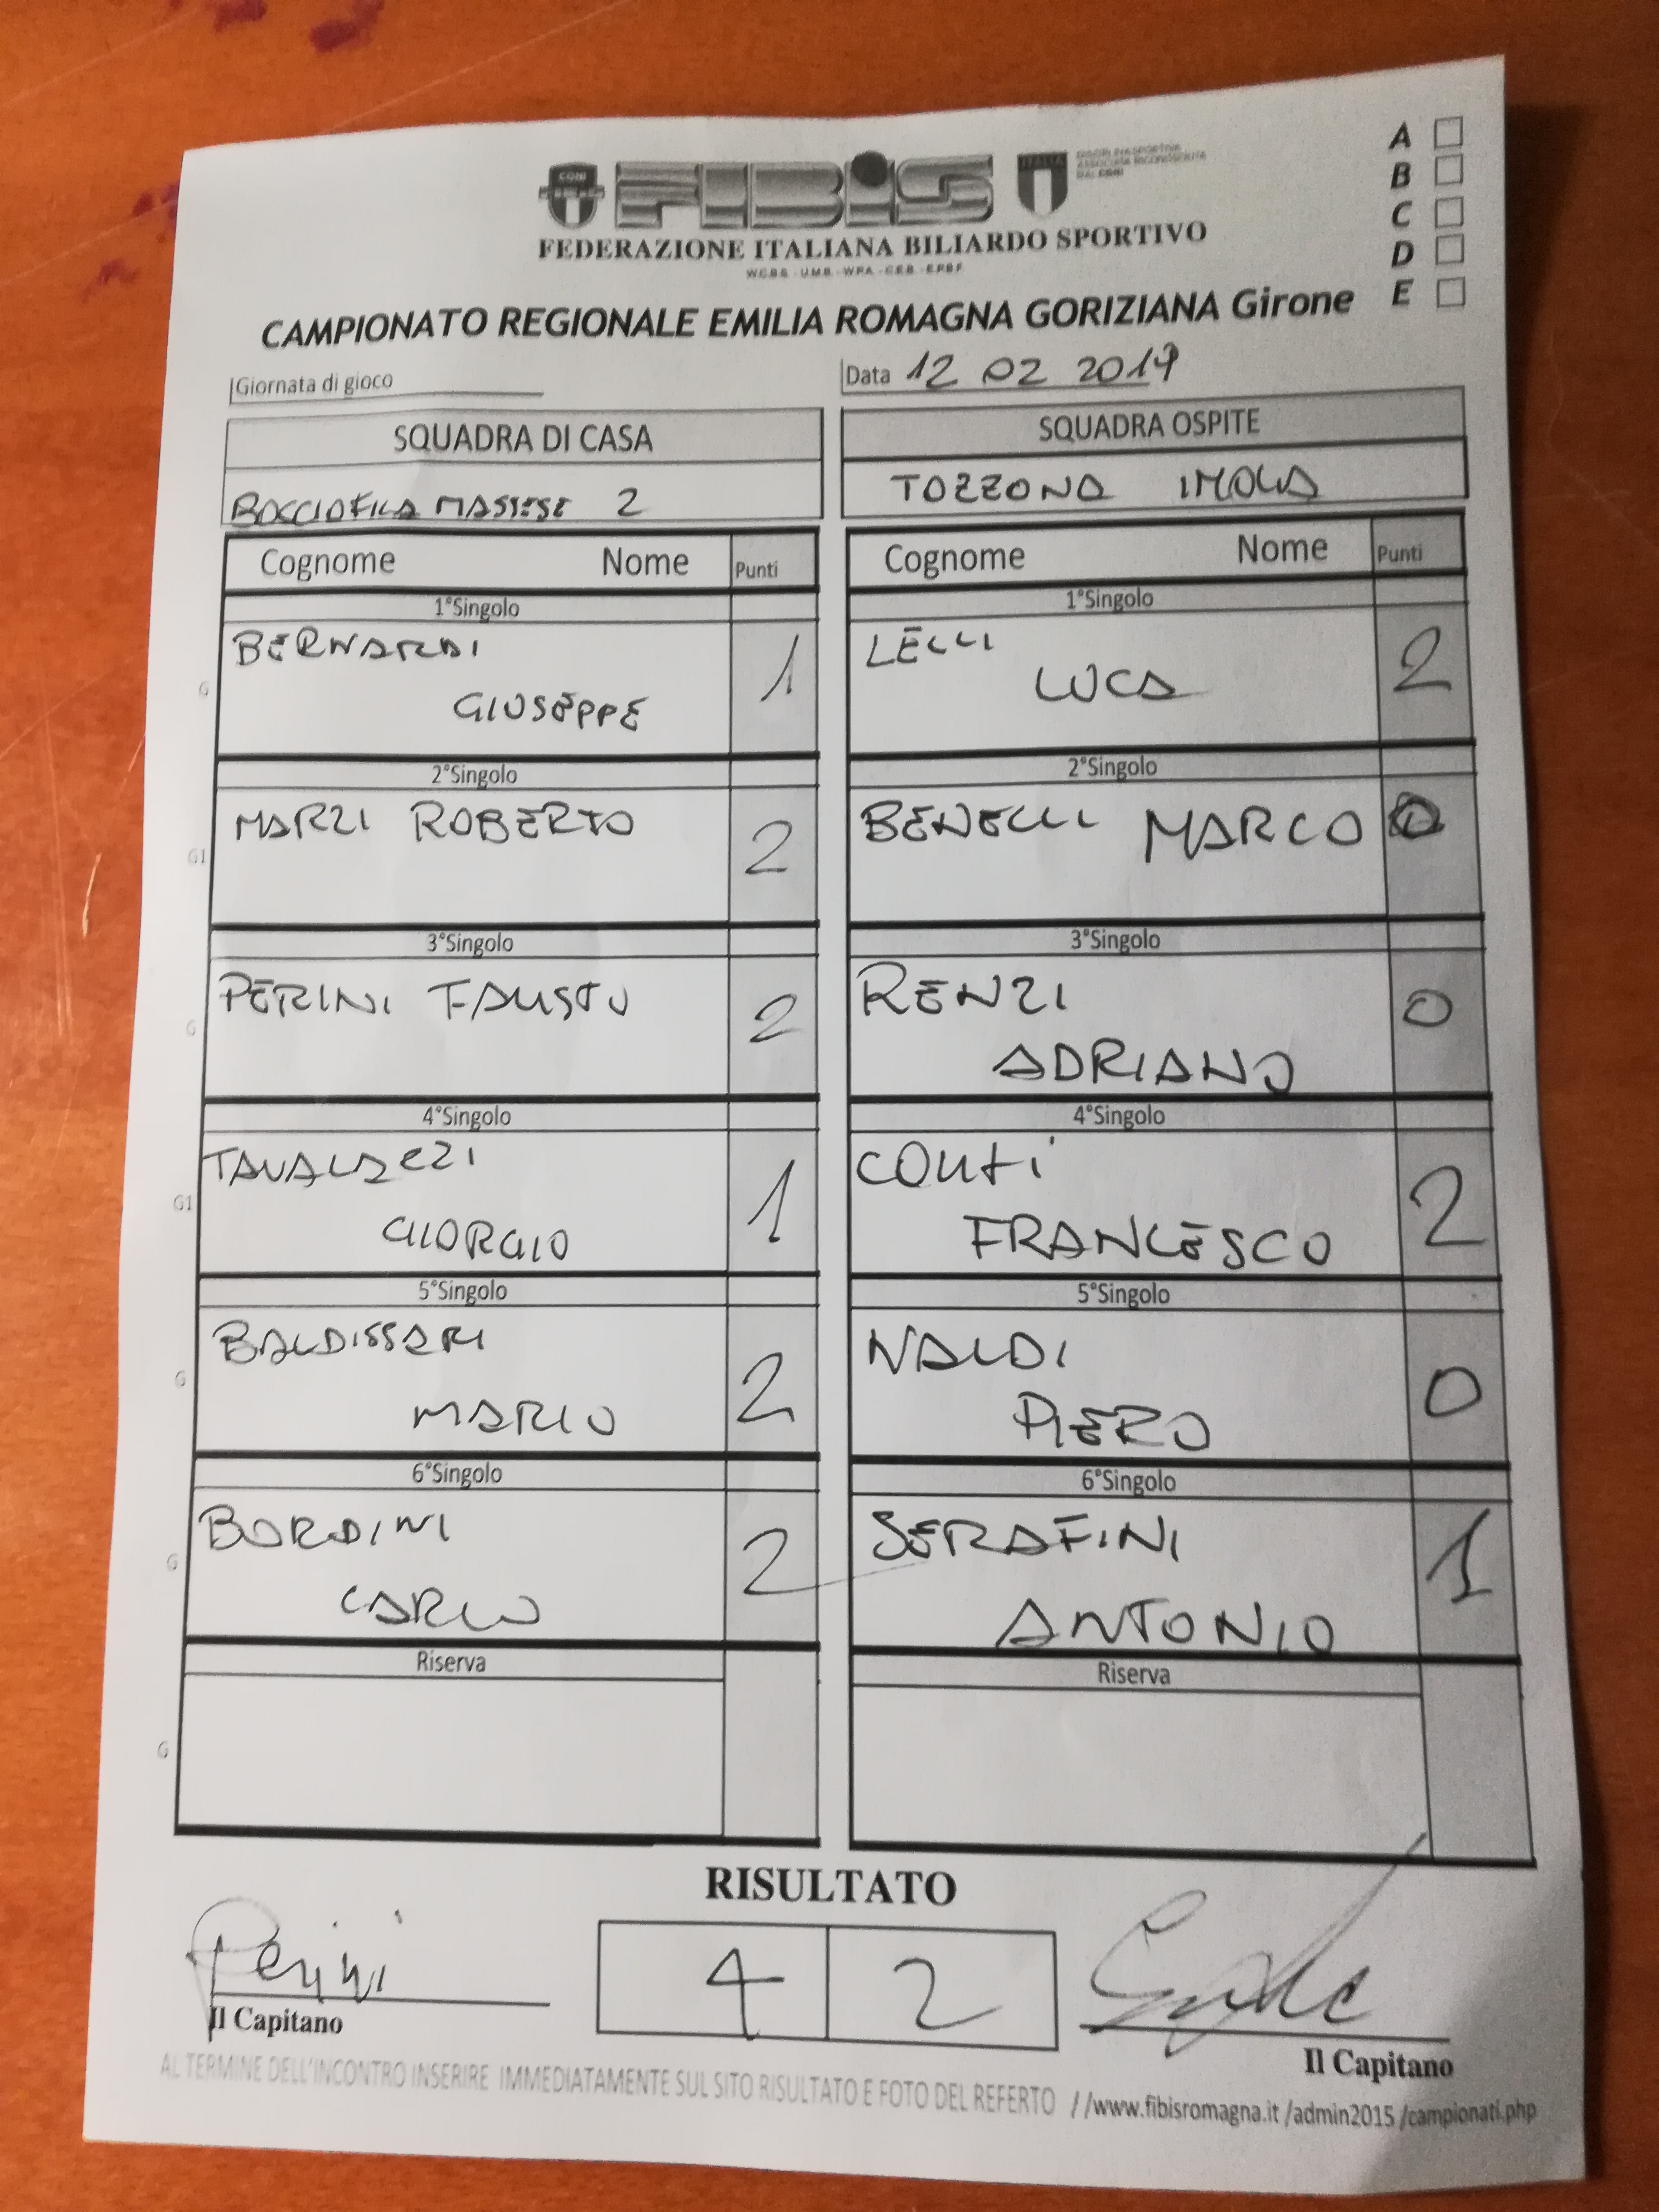 A
B
C
D
E
CONI
FIBIS
ITALIA
DISCIPLINA SPORTIVA
ASSOCIATA RICONOSCIUTA
DAL CONI
FEDERAZIONE ITALIANA BILIARDO SPORTIVO
W.C.B.S - U.M.B. - W.P.A. - C.E.B. - E.P.B.F
CAMPIONATO REGIONALE EMILIA ROMAGNA GORIZIANA Girone
Giornata di gioco
Data 12 02 2019
SQUADRA DI CASA
BOCCIOFILA MASSESE 2
SQUADRA OSPITE
TOZZONA IMOLA
Cognome Nome Punti
Cognome Nome Punti
1°Singolo
BERNARDI
GIUSEPPE
1
G
1°Singolo
LELLI
LUCA
2
2°Singolo
MARZI ROBERTO
2
G1
2°Singolo
BENELLI MARCO 0
3°Singolo
PERINI FAUSTO
2
G
3°Singolo
RENZI
ADRIANO
0
4°Singolo
TAVALAZZI
GIORGIO
1
G1
4°Singolo
CONTI
FRANCESCO
2
5°Singolo
BALDISSARI
MARIO
2
G
5°Singolo
NALDI
PIERO
0
6°Singolo
BORDINI
CARLO
2
G
6°Singolo
SERAFINI
ANTONIO
1
Riserva
G
Riserva
RISULTATO
4 2
Perini
Il Capitano
Il Capitano
AL TERMINE DELL'INCONTRO INSERIRE IMMEDIATAMENTE SUL SITO RISULTATO E FOTO DEL REFERTO //www.fibisromagna.it /admin2015 /campionati.php